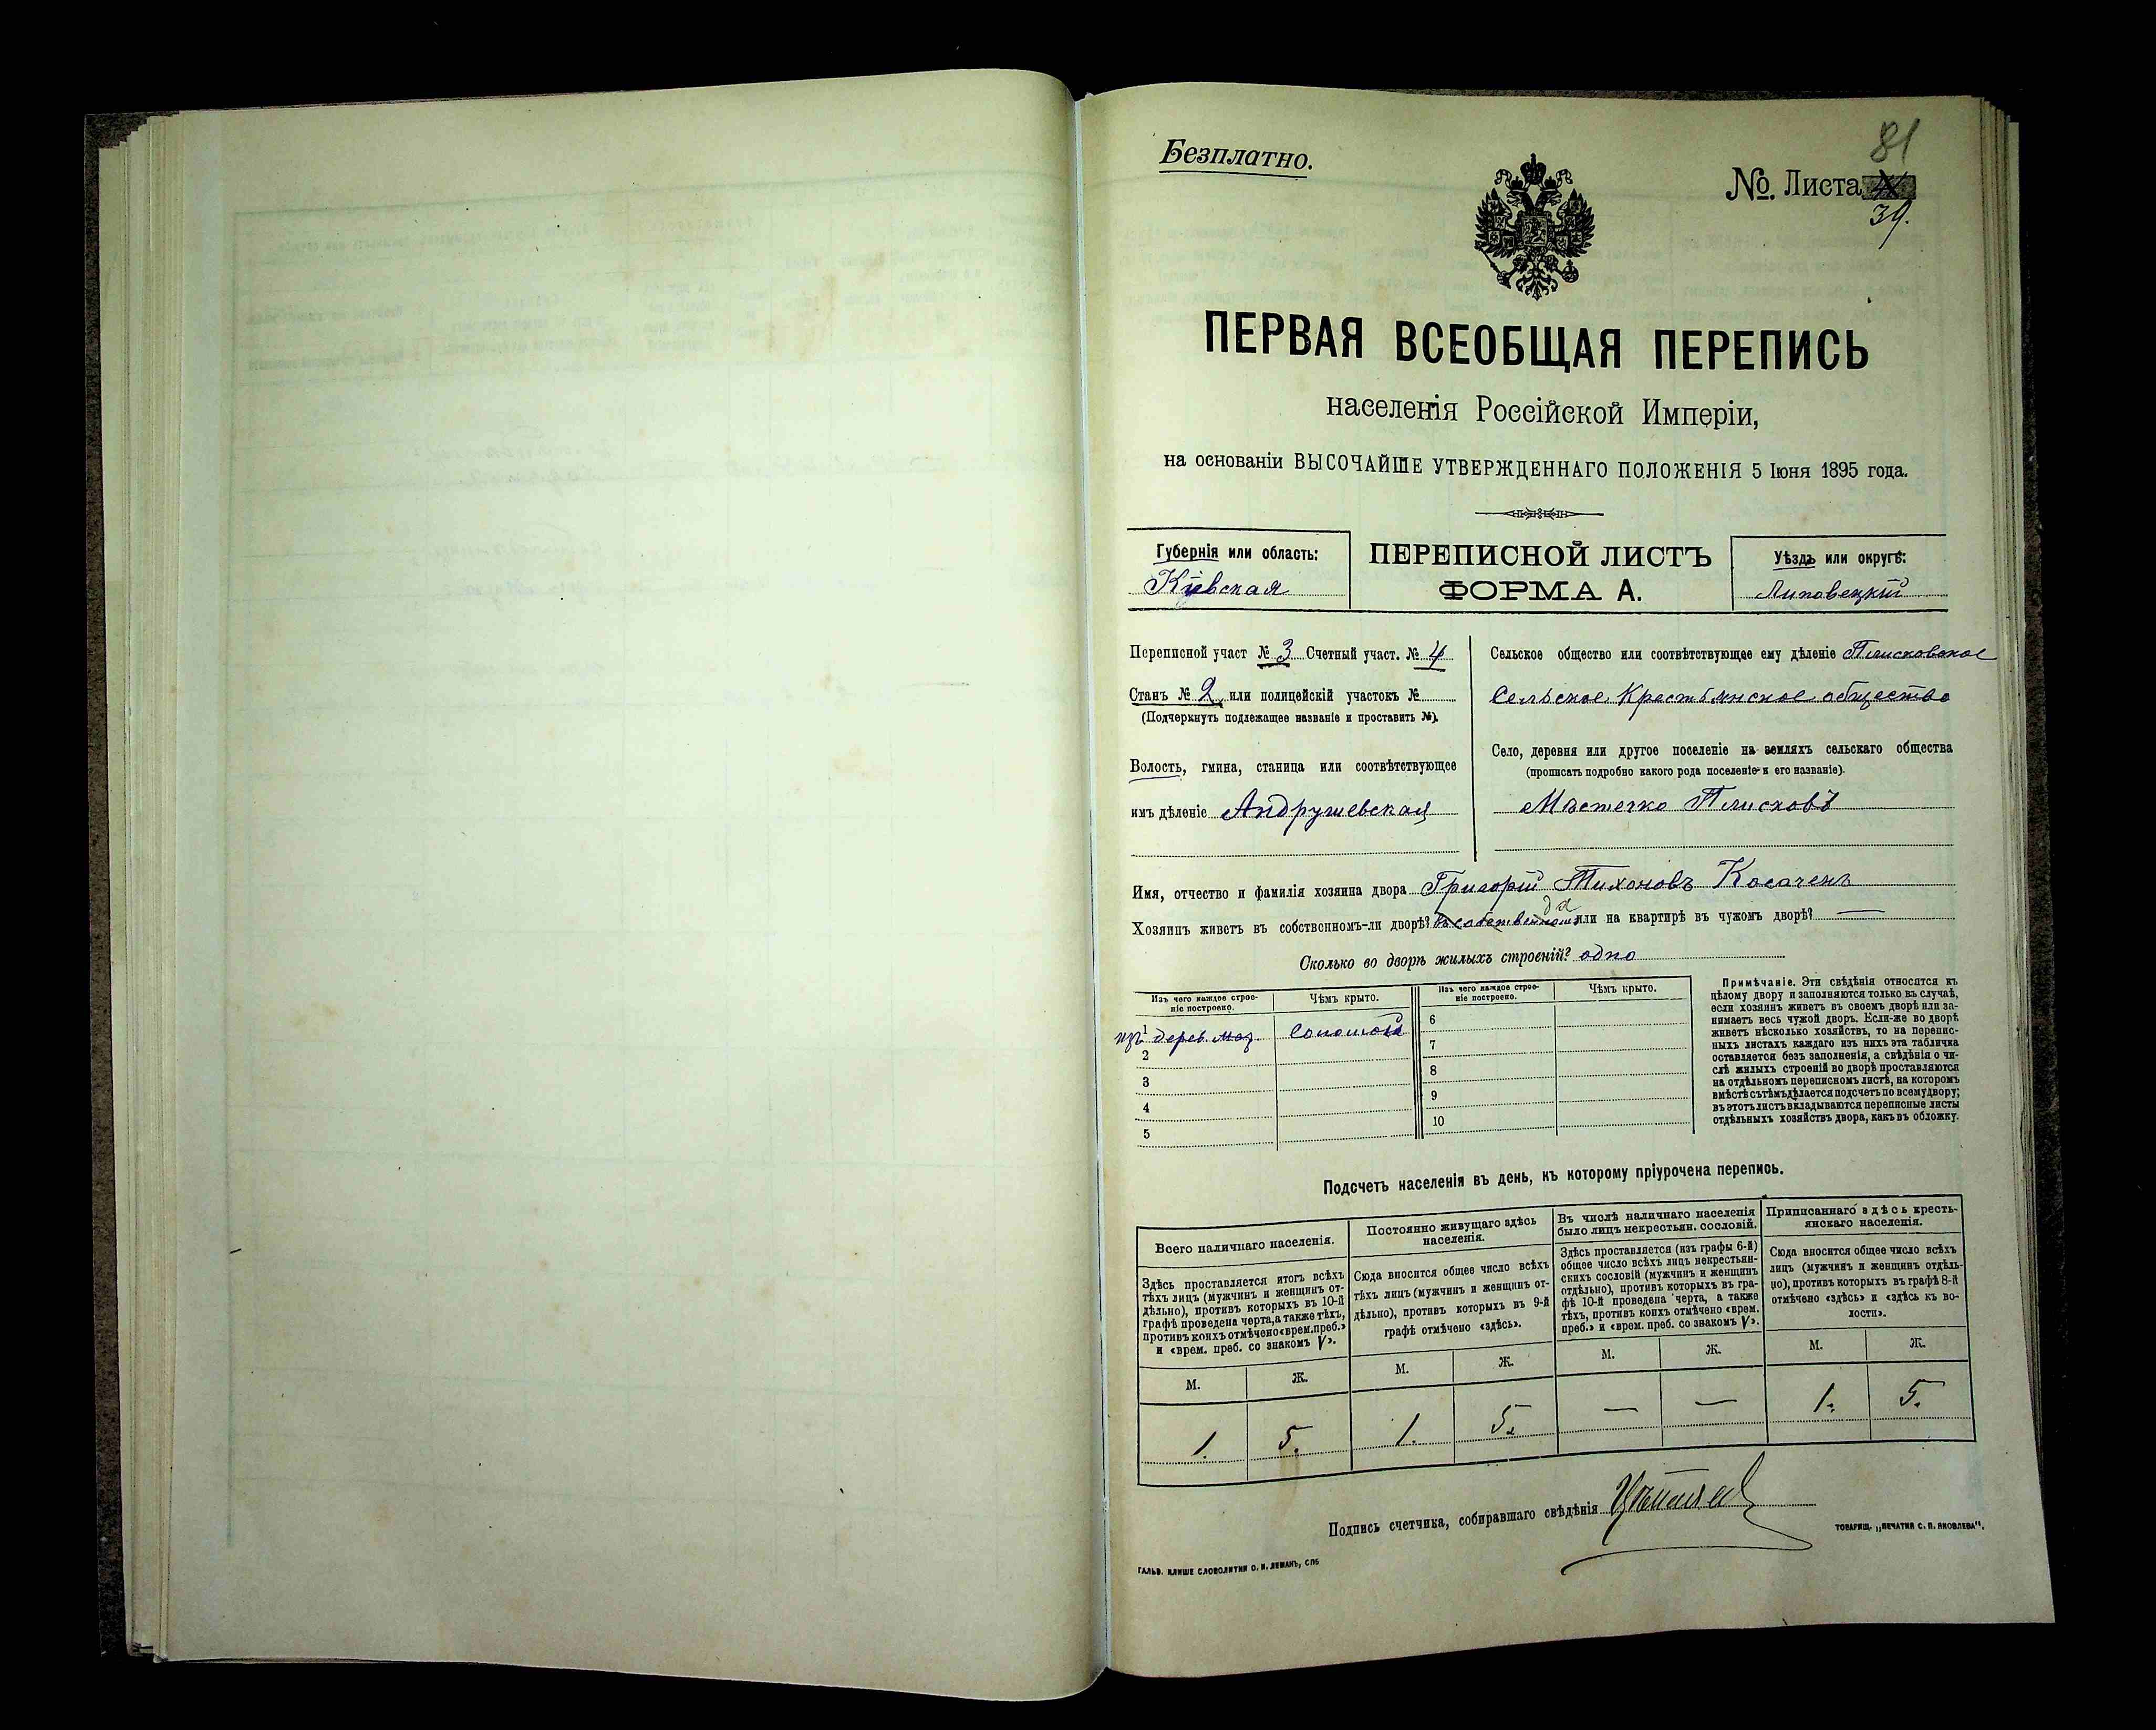 Безплатно.
81
№. Листа
39.
ПЕРВАЯ ВСЕОБЩАЯ ПЕРЕПИСЬ
населенія Россійской Имперіи,
на основаніи ВЫСОЧАЙШЕ УТВЕРЖДЕННАГО ПОЛОЖЕНІЯ 5 Іюня 1895 года.
Губернія или область:
Кіевская
ПЕРЕПИСНОЙ ЛИСТЪ
ФОРМА А.
Уѣздъ или округъ:
Липовецкій
Переписной участ № 3 Счетный участ. № 4
Станъ № 2 или полицейскій участокъ №
(Подчеркнуть подлежащее названіе и проставить №).
Волость, гмина, станица или соотвѣтствующее
имъ дѣленіе Андрушевская
Сельское общество или соотвѣтствующее ему дѣленіе Плисковское
Сельское Крестьянское общество
Село, деревня или другое поселеніе на земляхъ сельскаго общества
(прописать подробно какого рода поселеніе и его названіе).
Мѣстечко Плисковъ
Имя, отчество и фамилія хозяина двора Григорій Тихоновъ Косаченъ
Хозяинъ живетъ въ собственномъ-ли дворѣ? да или на квартирѣ въ чужомъ дворѣ? —
Сколько во дворѣ жилыхъ строеній? одно
Изъ чего каждое строе-
ніе построено.
Чѣмъ крыто.
Изъ чего каждое строе-
ніе построено.
Чѣмъ крыто.
1 изъ дерев. маз. Соломой
2
3
4
5
6
7
8
9
10
Примѣчаніе. Эти свѣдѣнія относятся къ
цѣлому двору и заполняются только въ случаѣ,
если хозяинъ живетъ въ своемъ дворѣ или за-
нимаетъ весь чужой дворъ. Если-же во дворѣ
живетъ нѣсколько хозяйствъ, то на перепис-
ныхъ листахъ каждаго изъ нихъ эта табличка
оставляется безъ заполненія, а свѣдѣнія о чи-
слѣ жилыхъ строеній во дворѣ проставляются
на отдѣльномъ переписномъ листѣ, на которомъ
вмѣстѣ съ тѣмъ дѣлается подсчетъ по всему двору;
въ этотъ листъ вкладываются переписные листы
отдѣльныхъ хозяйствъ двора, какъ въ обложку.
Подсчетъ населенія въ день, къ которому пріурочена перепись.
Всего наличнаго населенія.
Здѣсь проставляется итогъ всѣхъ
тѣхъ лицъ (мужчинъ и женщинъ от-
дѣльно), противъ которыхъ въ 10-й
графѣ проведена черта, а также тѣхъ,
противъ коихъ отмѣчено «врем. преб.»
и «врем. преб. со знакомъ V».
М. Ж.
1. 5.
Постоянно живущаго здѣсь
населенія.
Сюда вносится общее число всѣхъ
тѣхъ лицъ (мужчинъ и женщинъ от-
дѣльно), противъ которыхъ въ 9-й
графѣ отмѣчено «здѣсь».
М. Ж.
1. 5.
Въ числѣ наличнаго населенія
было лицъ некрестьян. сословій.
Здѣсь проставляется (изъ графы 6-й)
общее число всѣхъ лицъ некрестьян-
скихъ сословій (мужчинъ и женщинъ
отдѣльно), противъ которыхъ въ гра-
фѣ 10-й проведена черта, а также
тѣхъ, противъ коихъ отмѣчено «врем.
преб.» и «врем. преб. со знакомъ V».
М. Ж.
— —
Приписаннаго здѣсь кресть-
янскаго населенія.
Сюда вносится общее число всѣхъ
лицъ (мужчинъ и женщинъ отдѣль-
но), противъ которыхъ въ графѣ 8-й
отмѣчено «здѣсь» и «здѣсь къ во-
лости».
М. Ж.
1. 5.
Подпись счетчика, собиравшаго свѣдѣнія
ТОВАРИЩ. „ПЕЧАТНЯ С. П. ЯКОВЛЕВА“.
ГАЛЬВ. КЛИШЕ СЛОВОЛИТНИ О. И. ЛЕМАНЪ, СПБ